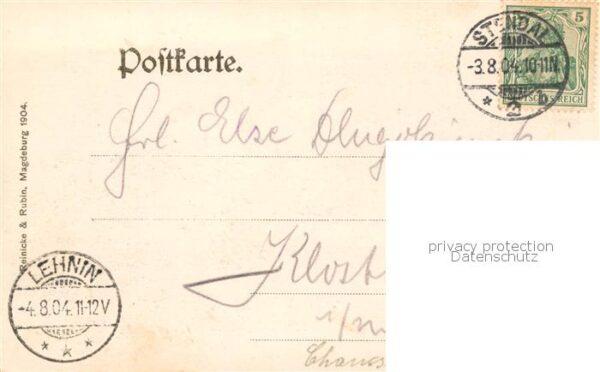 5
STENDAL
-3.8.04.10-11N.
* 2 b
DEUTSCHES REICH
Postkarte.
Reinicke & Rubin, Magdeburg 1904.
Frl. Else
privacy protection
Datenschutz
Klost
LEHNIN
-4.8.04.11-12V
* * *
i/m
Chauss